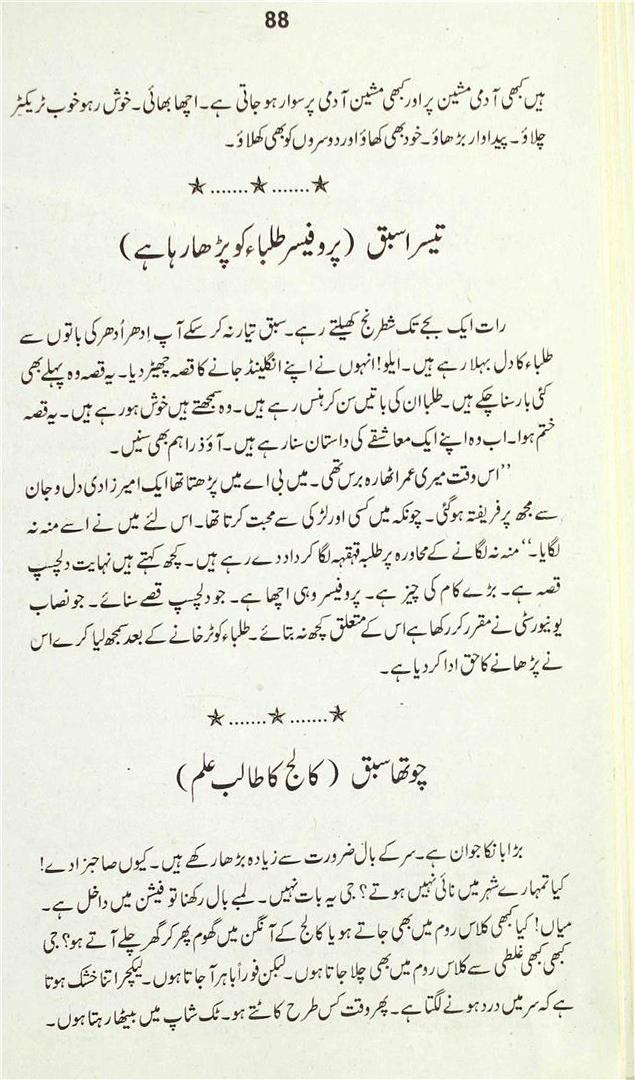 88
ہیں کبھی آدمی مشین پر اور کبھی مشین آدمی پر سوار ہو جاتی ہے۔ اچھا بھائی۔ خوش رہو خوب ٹریکٹر
چلاؤ۔ پیداوار بڑھاؤ۔ خود بھی کھاؤ اور دوسروں کو بھی کھلاؤ۔
★.......★.......★
تیسرا سبق (پروفیسر طلباء کو پڑھا رہا ہے)
رات ایک بجے تک شطرنج کھیلتے رہے۔ سبق تیار نہ کر سکے آپ اِدھر اُدھر کی باتوں سے
طلباء کا دل بہلا رہے ہیں۔ ایلو! انہوں نے اپنے انگلینڈ جانے کا قصہ چھیڑ دیا۔ یہ قصہ وہ پہلے بھی
کئی بار سنا چکے ہیں۔ طلبا ان کی باتیں سن کر ہنس رہے ہیں۔ وہ سمجھتے ہیں خوش ہو رہے ہیں۔ یہ قصہ
ختم ہوا۔ اب وہ اپنے ایک معاشقے کی داستان سنا رہے ہیں۔ آؤ ذرا ہم بھی سنیں۔
”اس وقت میری عمر اٹھارہ برس تھی۔ میں بی اے میں پڑھتا تھا ایک امیر زادی دل و جان
سے مجھ پر فریفتہ ہو گئی۔ چونکہ میں کسی اور لڑکی سے محبت کرتا تھا۔ اس لئے میں نے اسے منہ نہ
لگایا۔“ منہ نہ لگانے کے محاورہ پر طلبہ قہقہہ لگا کر داد دے رہے ہیں۔ کچھ کہتے ہیں نہایت دلچسپ
قصہ ہے۔ بڑے کام کی چیز ہے۔ پروفیسر وہی اچھا ہے۔ جو دلچسپ قصے سنائے۔ جو نصاب
یونیورسٹی نے مقرر کر رکھا ہے اس کے متعلق کچھ نہ بتائے۔ طلباء کو ٹرخانے کے بعد سمجھ لیا کرے اس
نے پڑھانے کا حق ادا کر دیا ہے۔
★.......★.......★
چوتھا سبق (کالج کا طالب علم)
بڑا بانکا جوان ہے۔ سر کے بال ضرورت سے زیادہ بڑھا رکھے ہیں۔ کیوں صاحبزادے!
کیا تمہارے شہر میں نائی نہیں ہوتے؟ جی یہ بات نہیں۔ لمبے بال رکھنا تو فیشن میں داخل ہے۔
میاں! کیا کبھی کلاس روم میں بھی جاتے ہو یا کالج کے آنگن میں گھوم پھر کر گھر چلے آتے ہو؟ جی
کبھی کبھی غلطی سے کلاس روم میں بھی چلا جاتا ہوں۔ لیکن فوراً باہر آ جاتا ہوں۔ لیکچر اتنا خشک ہوتا
ہے کہ سر میں درد ہونے لگتا ہے۔ پھر وقت کس طرح کاٹتے ہو۔ ٹک شاپ میں بیٹھا رہتا ہوں۔